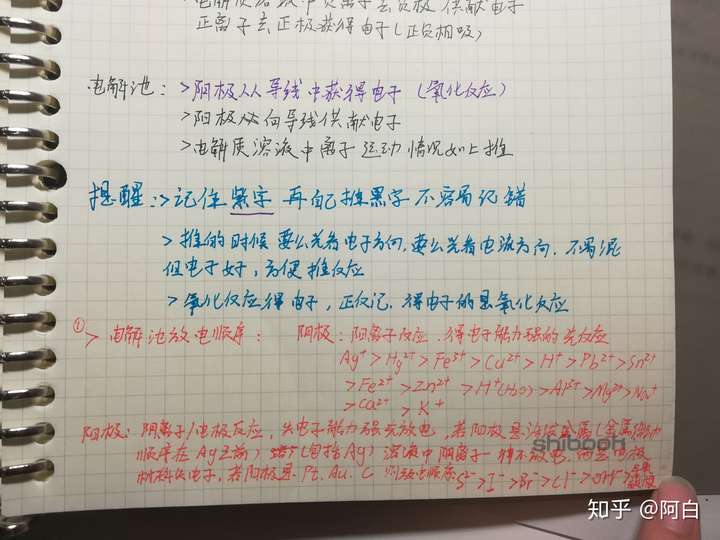 电解质溶液中负离子去负极供献电子
正离子去正极获得电子(正负相吸)
电解池: >阴极从导线中获得电子(氧化反应)
>阳极从向导线供献电子
>电解质溶液中离子运动情况如上推
提醒: >记住紫字 再自己推黑字 不容易记错
>推的时候要么先看电子方向,要么先看电流方向,不易混
但电子好,方便推反应
>氧化反应得电子,正反记,得电子的是氧化反应
① >电解池放电顺序: 阴极:阳离子反应,得电子能力强的先反应
Ag⁺>Hg²⁺>Fe³⁺>Cu²⁺>H⁺>Pb²⁺>Sn²⁺
>Fe²⁺>Zn²⁺>H⁺(H₂O)>Al³⁺>Mg²⁺>Na⁺
>Ca²⁺>K⁺
阳极:阴离子/电极反应,失电子能力强先放电,若阳极是活泼金属(金属活动
顺序在Ag之前)(包括Ag)溶液中阴离子 不放电,
材料失电子,若阳极是Pt.Au.C 则放电顺序S²⁻>I⁻>Br⁻>Cl⁻>OH⁻>含氧酸根
shibooh
知乎 @阿白